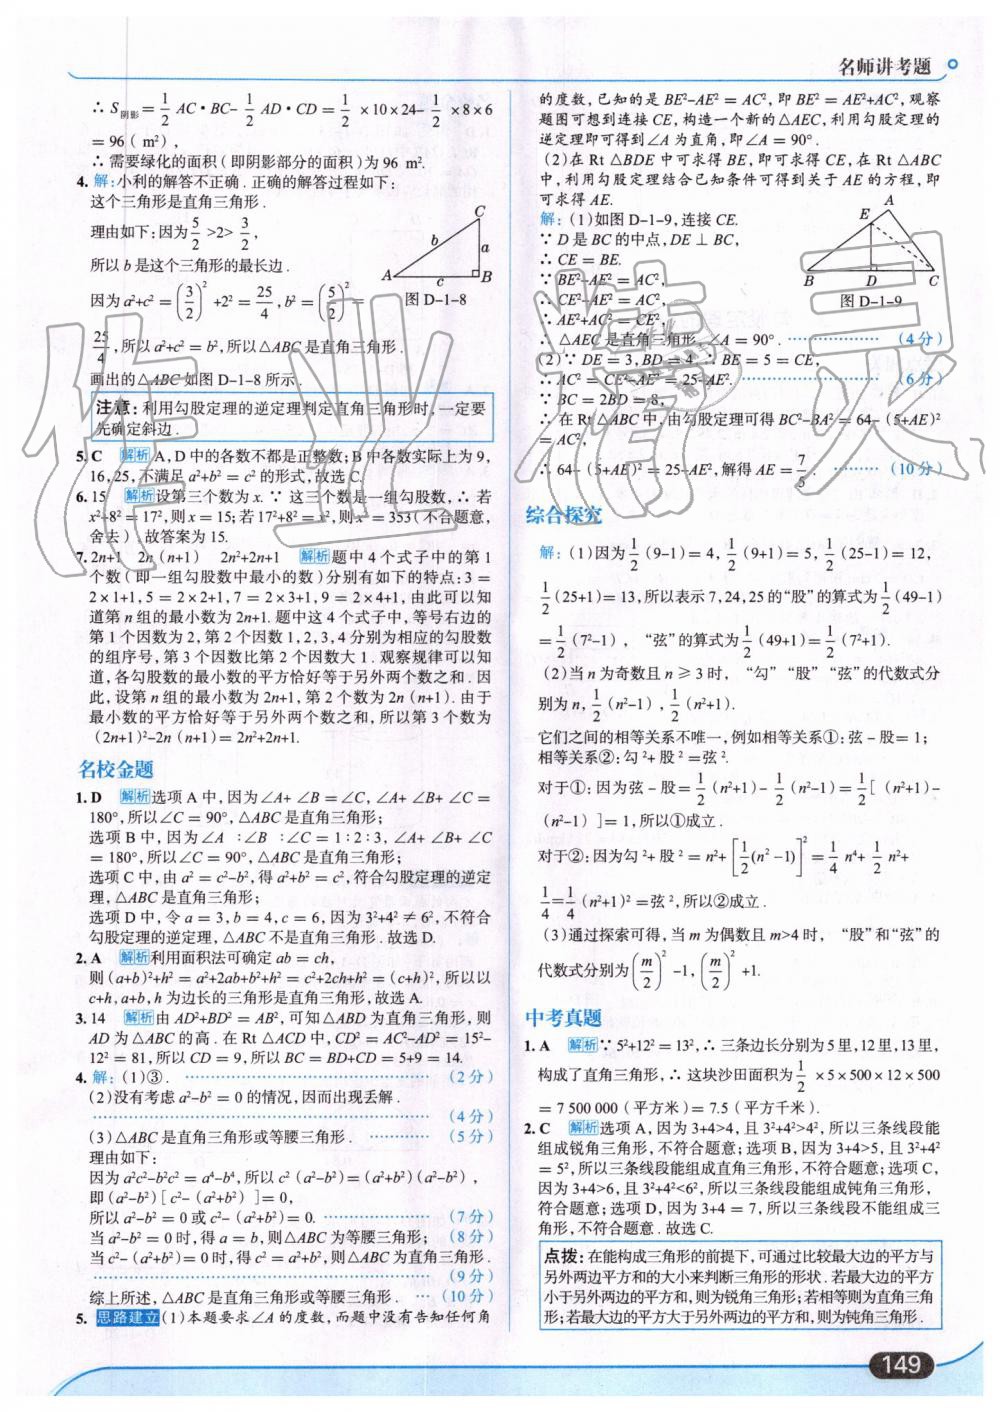 名师讲考题
∴ S阴影 = 1/2 AC·BC- 1/2 AD·CD = 1/2 ×10×24- 1/2 ×8×6
= 96 ( m² ) ,
∴ 需要绿化的面积 ( 即阴影部分的面积 ) 为 96 m².
4. 解: 小利的解答不正确 . 正确的解答过程如下:
这个三角形是直角三角形 .
理由如下: 因为 5/2 >2> 3/2 ,
所以 b 是这个三角形的最长边 .
因为 a²+c² = (3/2)² +2² = 25/4 , b² = (5/2)² =
25/4 , 所以 a²+c² = b² , 所以 △ABC 是直角三角形 .
画出的 △ABC 如图 D-1-8 所示 .
C
b
a
A
c
B
图 D-1-8
注意: 利用勾股定理的逆定理判定直角三角形时, 一定要
先确定斜边 .
5. C 解析 A, D 中的各数不都是正整数; B 中各数实际上为 9,
16, 25, 不满足 a²+b² = c² 的形式, 故选 C.
6. 15 解析 设第三个数为 x. ∵ 这三个数是一组勾股数, ∴ 若
x²+8² = 17² , 则 x = 15; 若 17²+8² = x² , 则 x² = 353 ( 不合题意,
舍去 ) . 故答案为 15.
7. 2n+1 2n ( n+1 ) 2n²+2n+1 解析 题中 4 个式子中的第 1
个数 ( 即一组勾股数中最小的数 ) 分别有如下的特点: 3 =
2×1+1, 5 = 2×2+1, 7 = 2×3+1, 9 = 2×4+1, 由此可以知
道第 n 组的最小数为 2n+1. 题中这 4 个式子中, 等号右边的
第 1 个因数为 2, 第 2 个因数 1, 2, 3, 4 分别为相应的勾股数
的组序号, 第 3 个因数比第 2 个因数大 1 . 观察规律可以知
道, 各勾股数的最小数的平方恰好等于另外两个数之和 . 因
此, 设第 n 组的最小数为 2n+1, 第 2 个数为 2n ( n+1 ) . 由于
最小数的平方恰好等于另外两个数之和, 所以第 3 个数为
( 2n+1 )²-2n ( n+1 ) = 2n²+2n+1.
名校金题
1. D 解析 选项 A 中, 因为 ∠A+ ∠B = ∠C, ∠A+ ∠B+ ∠C =
180°, 所以 ∠C = 90°, △ABC 是直角三角形;
选项 B 中, 因为 ∠A ∶∠B ∶∠C = 1∶2∶3, ∠A+ ∠B+ ∠C
= 180°, 所以 ∠C = 90°, △ABC 是直角三角形;
选项 C 中, 由 a² = c²-b² , 得 a²+b² = c² , 符合勾股定理的逆定
理, △ABC 是直角三角形;
选项 D 中, 令 a = 3, b = 4, c = 6, 因为 3²+4² ≠ 6² , 不符合
勾股定理的逆定理, △ABC 不是直角三角形 . 故选 D.
2. A 解析 利用面积法可确定 ab = ch,
则 ( a+b )²+h² = a²+2ab+b²+h² = c²+2ch+h² = ( c+h )² , 所以以
c+h, a+b, h 为边长的三角形是直角三角形, 故选 A.
3. 14 解析 由 AD²+BD² = AB² , 可知 △ABD 为直角三角形, 则
AD 为 △ABC 的高 . 在 Rt △ACD 中, CD² = AC²-AD² = 15²-
12² = 81, 所以 CD = 9, 所以 BC = BD+CD = 5+9 = 14.
4. 解: (1)③ . …… ( 2 分 )
(2)没有考虑 a²-b² = 0 的情况, 因而出现丢解 .
…… ( 4 分 )
(3) △ABC 是直角三角形或等腰三角形 . …… ( 5 分 )
理由如下:
因为 a²c²-b²c² = a⁴-b⁴ , 所以 c² ( a²-b² ) = ( a²+b² ) ( a²-b² ) ,
即 ( a²-b² ) [ c²- ( a²+b² ) ] = 0,
所以 a²-b² = 0 或 c²- ( a²+b² ) = 0. …… ( 7 分 )
当 a²-b² = 0 时, 得 a = b, 则 △ABC 为等腰三角形; ( 8 分 )
当 c²- ( a²+b² ) = 0 时, 得 c² = a²+b² , 则 △ABC 为直角三角形 .
…… ( 9 分 )
综上所述, △ABC 是直角三角形或等腰三角形 . … ( 10 分 )
5. 思路建立 (1)本题要求 ∠A 的度数, 而题中没有告知任何角
的度数, 已知的是 BE²-AE² = AC² , 即 BE² = AE²+AC² , 观察
题图可想到连接 CE, 构造一个新的 △AEC, 利用勾股定理的
逆定理即可得到 ∠A 为直角, 即 ∠A = 90°.
(2)在 Rt △BDE 中可求得 BE, 即可求得 CE, 在 Rt △ABC
中, 利用勾股定理结合已知条件可得到关于 AE 的方程, 即
可求得 AE.
解: (1)如图 D-1-9, 连接 CE.
∵ D 是 BC 的中点, DE ⊥ BC,
∴ CE = BE.
∵ BE²-AE² = AC² ,
∴ CE²-AE² = AC² ,
∴ AE²+AC² = CE² ,
∴ △AEC 是直角三角形, ∠A = 90°. …… ( 4 分 )
A
E
B
D
C
图 D-1-9
(2) ∵ DE = 3, BD = 4, ∴ BE = 5 = CE,
∴ AC² = CE²-AE² = 25-AE². …… ( 6 分 )
∵ BC = 2BD = 8,
∴ 在 Rt △ABC 中, 由勾股定理可得 BC²-BA² = 64- ( 5+AE )²
= AC² ,
∴ 64- ( 5+AE )² = 25-AE² , 解得 AE = 7/5 . …… ( 10 分 )
综合探究
解: (1)因为 1/2 ( 9-1 ) = 4, 1/2 ( 9+1 ) = 5, 1/2 ( 25-1 ) = 12,
1/2 ( 25+1 ) = 13, 所以表示 7, 24, 25 的 “股” 的算式为 1/2 ( 49-1 )
= 1/2 ( 7²-1 ) , “弦” 的算式为 1/2 ( 49+1 ) = 1/2 ( 7²+1 ) .
(2)当 n 为奇数且 n ≥ 3 时, “勾” “股” “弦” 的代数式分
别为 n, 1/2 ( n²-1 ) , 1/2 ( n²+1 ) .
它们之间的相等关系不唯一, 例如相等关系①: 弦 - 股 = 1;
相等关系②: 勾²+ 股² = 弦² .
对于①: 因为弦 - 股 = 1/2 ( n²+1 ) - 1/2 ( n²-1 ) = 1/2 [ ( n²+1 ) -
( n²-1 ) ] = 1, 所以①成立 .
对于②: 因为勾²+ 股² = n²+ [1/2 (n²-1)]² = 1/4 n⁴+ 1/2 n²+
1/4 = 1/4 ( n²+1 )² = 弦² , 所以②成立 .
(3)通过探索可得, 当 m 为偶数且 m>4 时, “股” 和 “弦” 的
代数式分别为 (m/2)² -1, (m/2)² +1.
中考真题
1. A 解析 ∵ 5²+12² = 13² , ∴ 三条边长分别为 5 里, 12 里, 13 里,
构成了直角三角形, ∴ 这块沙田面积为 1/2 ×5×500×12×500
= 7 500 000 ( 平方米 ) = 7.5 ( 平方千米 ) .
2. C 解析 选项 A, 因为 3+4>4, 且 3²+4²>4² , 所以三条线段能
组成锐角三角形, 不符合题意; 选项 B, 因为 3+4>5, 且 3²+4²
= 5² , 所以三条线段能组成直角三角形, 不符合题意; 选项 C,
因为 3+4>6, 且 3²+4²<6² , 所以三条线段能组成钝角三角形,
符合题意; 选项 D, 因为 3+4 = 7, 所以三条线段不能组成三
角形, 不符合题意 . 故选 C.
点拨: 在能构成三角形的前提下, 可通过比较最大边的平方与
另外两边平方和的大小来判断三角形的形状 . 若最大边的平方
小于另外两边的平方和, 则为锐角三角形; 若相等则为直角三角
形; 若最大边的平方大于另外两边的平方和, 则为钝角三角形 .
149
作业精灵